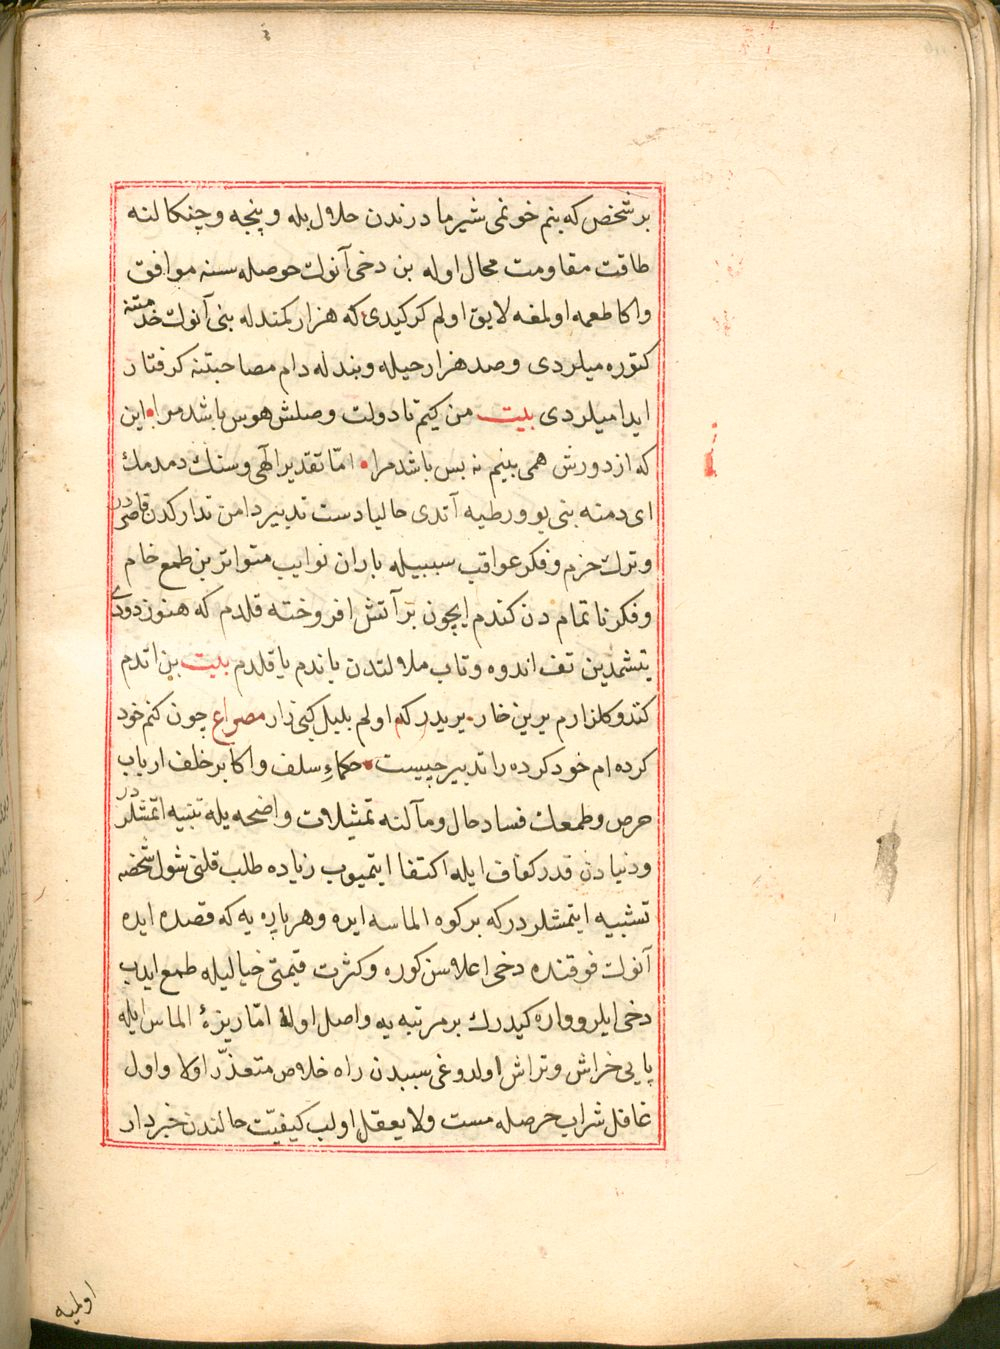 بر شخص که بنم خونمی شیر مادرندن حلال بله و پنجه و چنکالنه
طاقت مقاومت محال اوله بن دخی آنوك حوصله سنه موافق
واکا طعمه اولمغه لایق اولم کرکیدی که هزار کمندله بنی آنوك خدمتنه
کتوره میلردی وصد هزار حیله وبندله دام مصاحبتنه کرفتار
ایدامیلردی بیت من کیم تا دولت وصلش هوس باشد مرا این
که از دورش همی بینم نه بس باشد مرا امّا تقدیر الهی وسنك دمدمك
ای دمنه بنی بو ورطیه آتدی حالیا دست تدبیر دامن تدارکدن قاصردر
وترك حزم وفکر عواقب سببیله باران نوایب متواتر بن طمع خام
وفکر ناتمام دن کندم ایچون بر آتش افروخته قلدم که هنوز دودی
یتشمدین تف اندوه وتاب ملالتدن یاندم یاقلدم بیت بن اتدم
کندو کلزارم یرین خار یریدر کم اولم بلبل کبی زار مصراع چون کنم خود
کرده ام خود کرده را تدبیر چیست حکماء سلف واکابر خلف ارباب
حرص وطمعك فساد حال ومآلنه تمثیلات واضحه یله تنبیه اتمشلردر
ودنیادن قدر کفاف ایله اکتفا ایتمیوب زیاده طلب قلنی شول شخصه
تشبیه ایتمشلردر که بر کوه الماسه ایره وهر پاره یه که قصده ایده
آنوك فوقنده دخی اعلاسن کوره وکثرت قیمتی خیالیله طمع ایدب
دخی ایلرو واره کیدرك بر مرتبه یه واصل اوله امّا ریزهٔ الماس ایله
پایی خراش وتراش اولدوغی سببدن راه خلاص متعذّر اولا واول
غافل شراب حرصله مست ولایعقل اولب کیفیّت حالندن خبردار
اولمیه